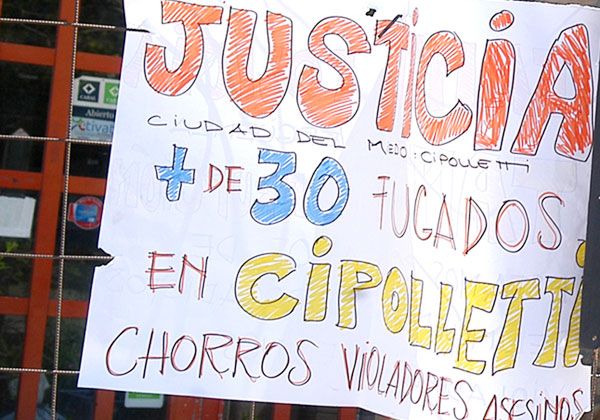 JUSTICIA
CIUDAD DEL MEDO: CIPOLLETTI
+ DE 30 FUGADOS
EN CIPOLLETTI
CHORROS VIOLADORES ASESINOS
CABAL
Abierto